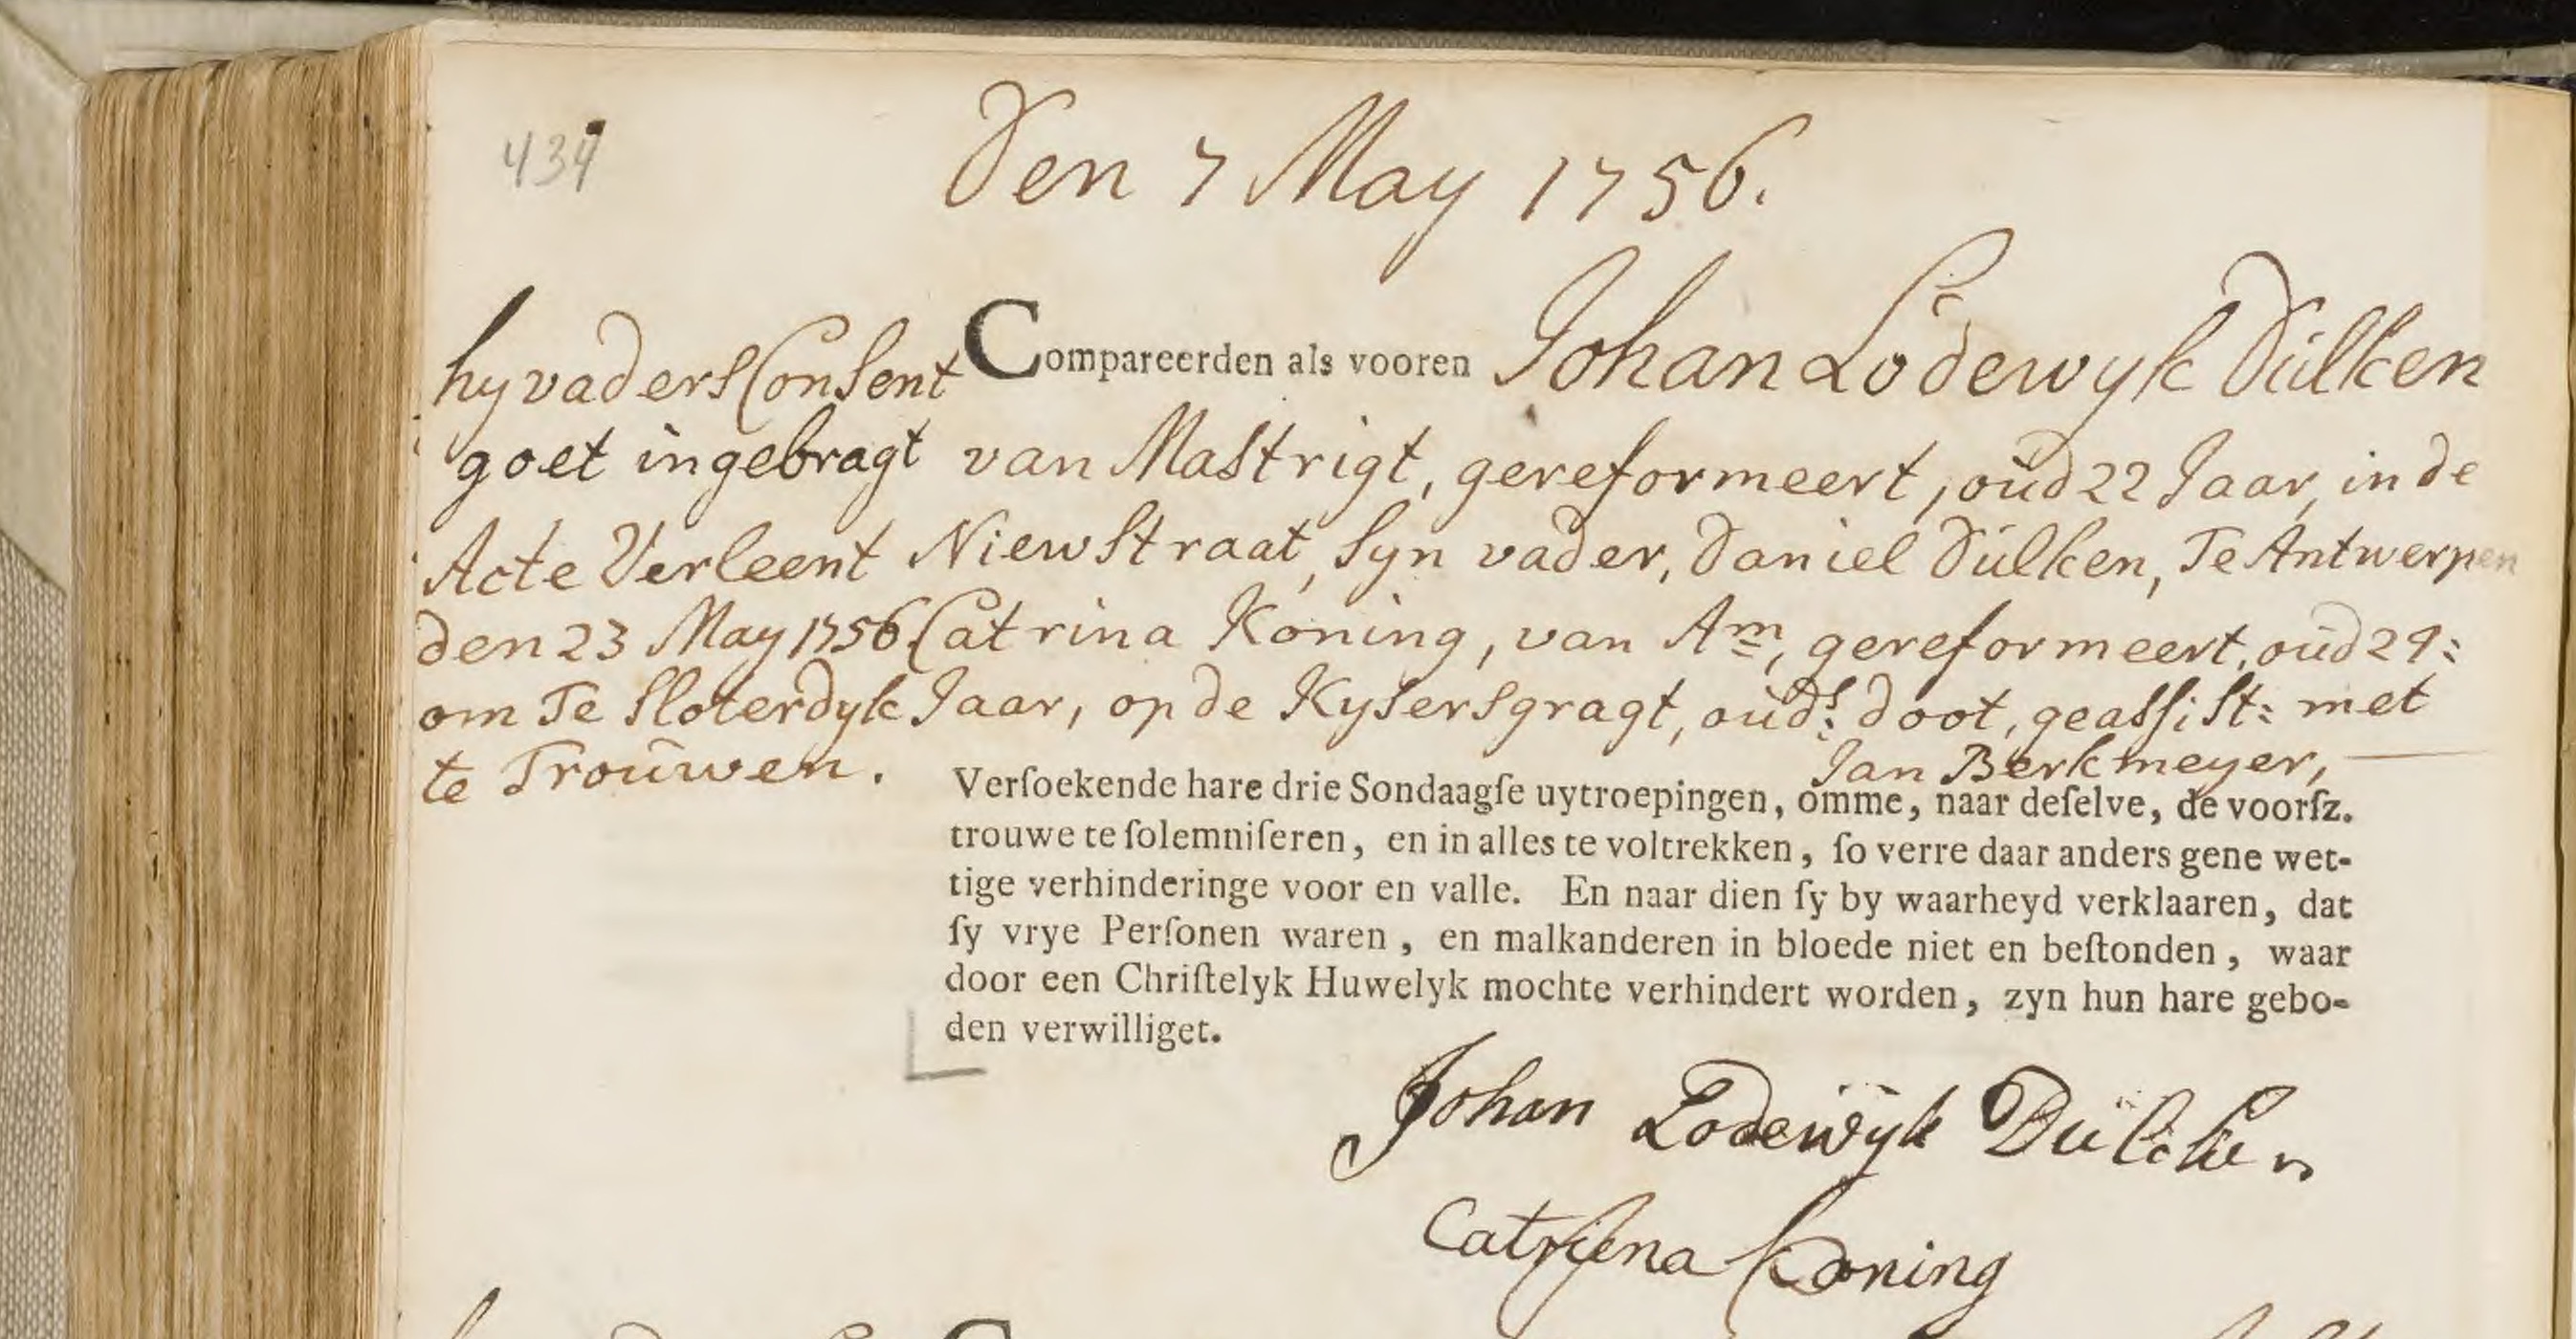 434
Den 7 May 1756.
Compareerden als vooren Johan Lodewyk Dülken
van Mastrigt, gereformeert, oud 22 Jaar, in de
Niewstraat, Syn vader, Daniel Dülken, Te Antwerpen
Catrina Koning, van Am, gereformeert, oud 29:
Jaar, op de Kysersgragt, ouds: doot, geassist: met
Jan Berkmeyer,
hy vaders Consent
goet ingebragt
Acte Verleent
den 23 May 1756
om Te Sloterdyk
te Trouwen.
Verſoekende hare drie Sondaagſe uytroepingen, omme, naar deſelve, de voorſz.
trouwe te ſolemniſeren, en in alles te voltrekken, ſo verre daar anders gene wet-
tige verhinderinge voor en valle. En naar dien ſy by waarheyd verklaaren, dat
ſy vrye Perſonen waren, en malkanderen in bloede niet en beſtonden, waar
door een Chriſtelyk Huwelyk mochte verhindert worden, zyn hun hare gebo-
den verwilliget.
Johan Lodewÿk Dülcken
Catrÿna Koning